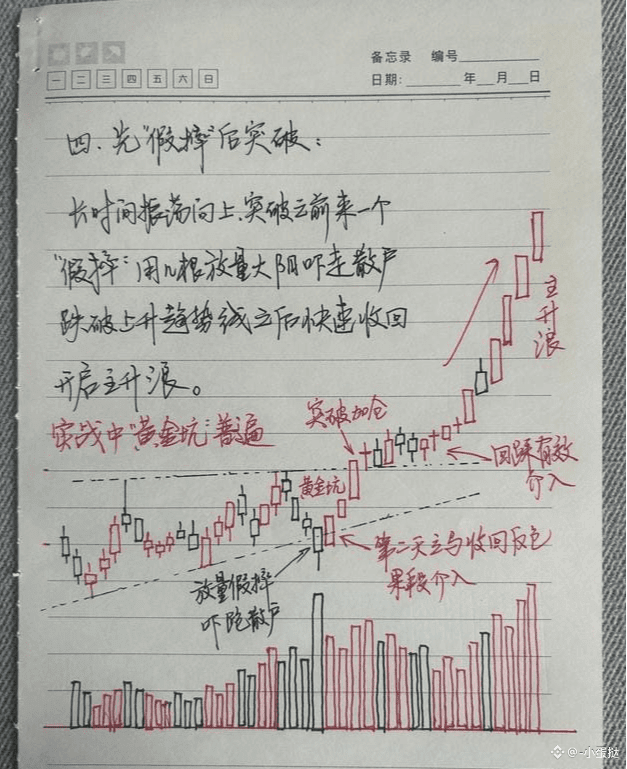 备忘录 编号
一 二 三 四 五 六 日
日期: 年 月 日
四.先"假摔"后突破:
长时间振荡向上.突破之前来一个
"假摔":用几根放量大阴吓走散户
跌破上升趋势线之后快速收回
开启主升浪。
实战中"黄金坑"普遍
突破加仓
主升浪
回踩有效
介入
黄金坑
第二天立马收回反包
果断介入
放量假摔
吓跑散户
@-小蛋挞